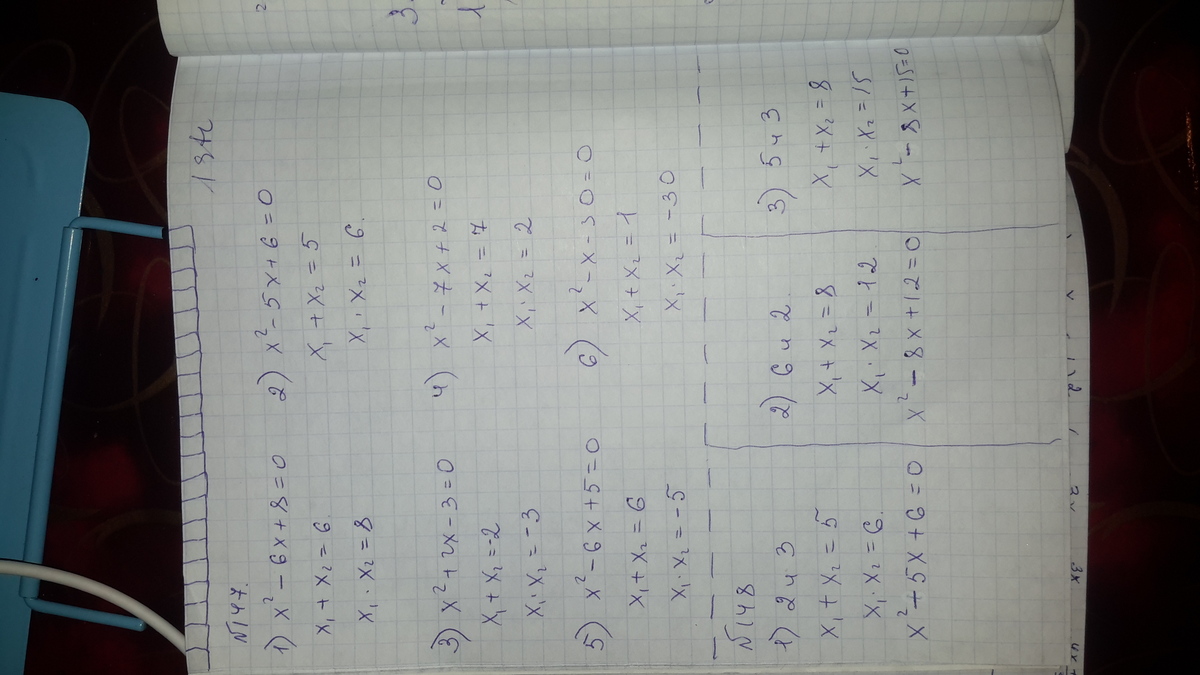 №147.
1) x² - 6x + 8 = 0
x₁ + x₂ = 6.
x₁ · x₂ = 8
2) x² - 5x + 6 = 0
x₁ + x₂ = 5
x₁ · x₂ = 6.
3) x² + 2x - 3 = 0
x₁ + x₂ = -2
x₁ · x₂ = -3
4) x² - 7x + 2 = 0
x₁ + x₂ = 7
x₁ · x₂ = 2
5) x² - 6x + 5 = 0
x₁ + x₂ = 6
x₁ · x₂ = -5
6) x² - x - 30 = 0
x₁ + x₂ = 1
x₁ · x₂ = -30
№148
1) 2 и 3
x₁ + x₂ = 5
x₁ · x₂ = 6.
x² + 5x + 6 = 0
2) 6 и 2.
x₁ + x₂ = 8
x₁ · x₂ = 12
x² - 8x + 12 = 0
3) 5 и 3
x₁ + x₂ = 8
x₁ · x₂ = 15
x² - 8x + 15 = 0